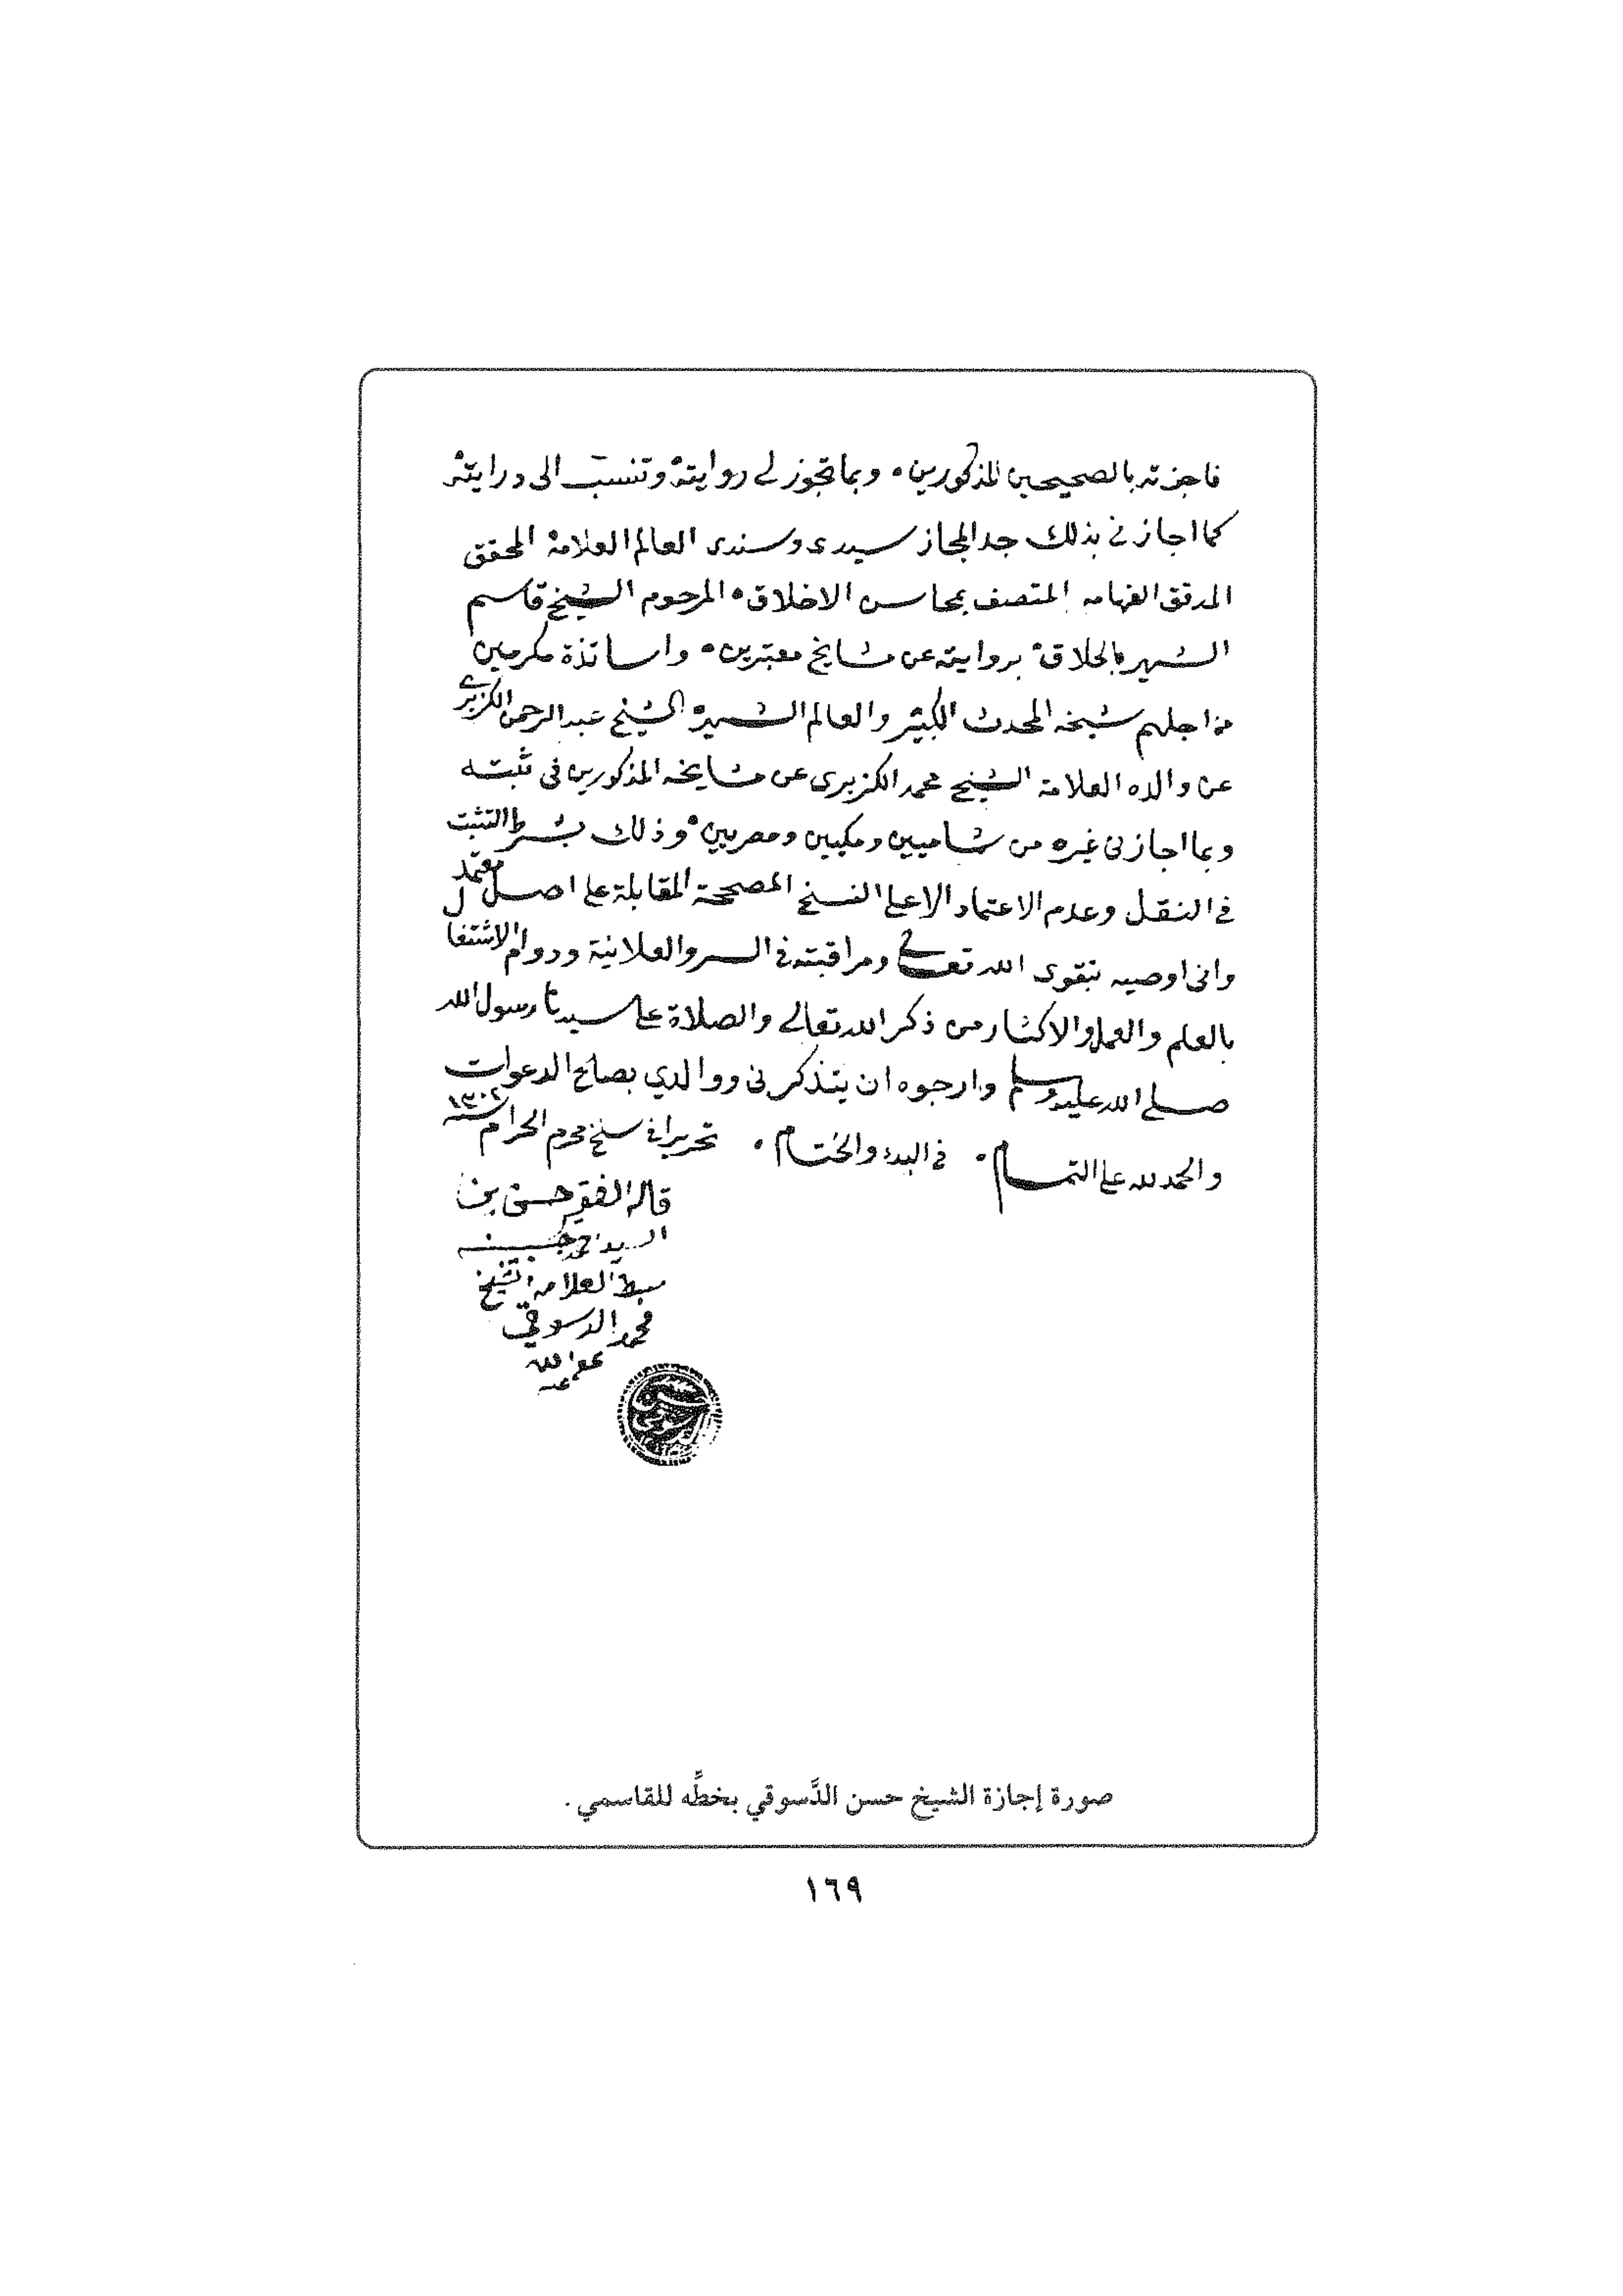 فاجزته بالصحيحين المذكورين • وبما تجوز لي روايته وتنسب الى درايته
كما اجازني بذلك جد المجاز سيدي وسندي العالم العلامة المحقق
المدقق الفهامه المتصف بمحاسن الاخلاق • المرحوم الشيخ قاسم
الشهير بالحلاق • بروايته عن مشايخ معتبرين • واساتذة مكرمين
من اجلهم شيخه المحدث الكبير والعالم الشهير الشيخ عبد الرحمن الكزبري
عن والده العلامة الشيخ محمد الكزبري عن مشايخه المذكورين في ثبته
وبما اجازني غيره من شاميين ومكيين ومصريين • وذلك بشرط التثبت
في النقل وعدم الاعتماد الا على النسخ المصححة المقابلة على اصل معتمد
واني اوصيه بتقوى الله تعالى ومراقبته في السر والعلانية ودوام الاشتغال
بالعلم والعمل والاكثار من ذكر الله تعالى والصلاة على سيدنا رسول الله
صلى الله عليه وسلم وارجوه ان يتذكرني ووالدي بصالح الدعوات
والحمد لله على التمام • في البدء والختام • تحريرا في سلخ محرم الحرام سنه ١٣٠٢
قاله الفقير حسن بن
السيد
سبط العلامه الشيخ
محمد الدسوقي
عفى الله
عنه
صورة إجازة الشيخ حسن الدَّسوقي بخطِّه للقاسمي .
١٦٩